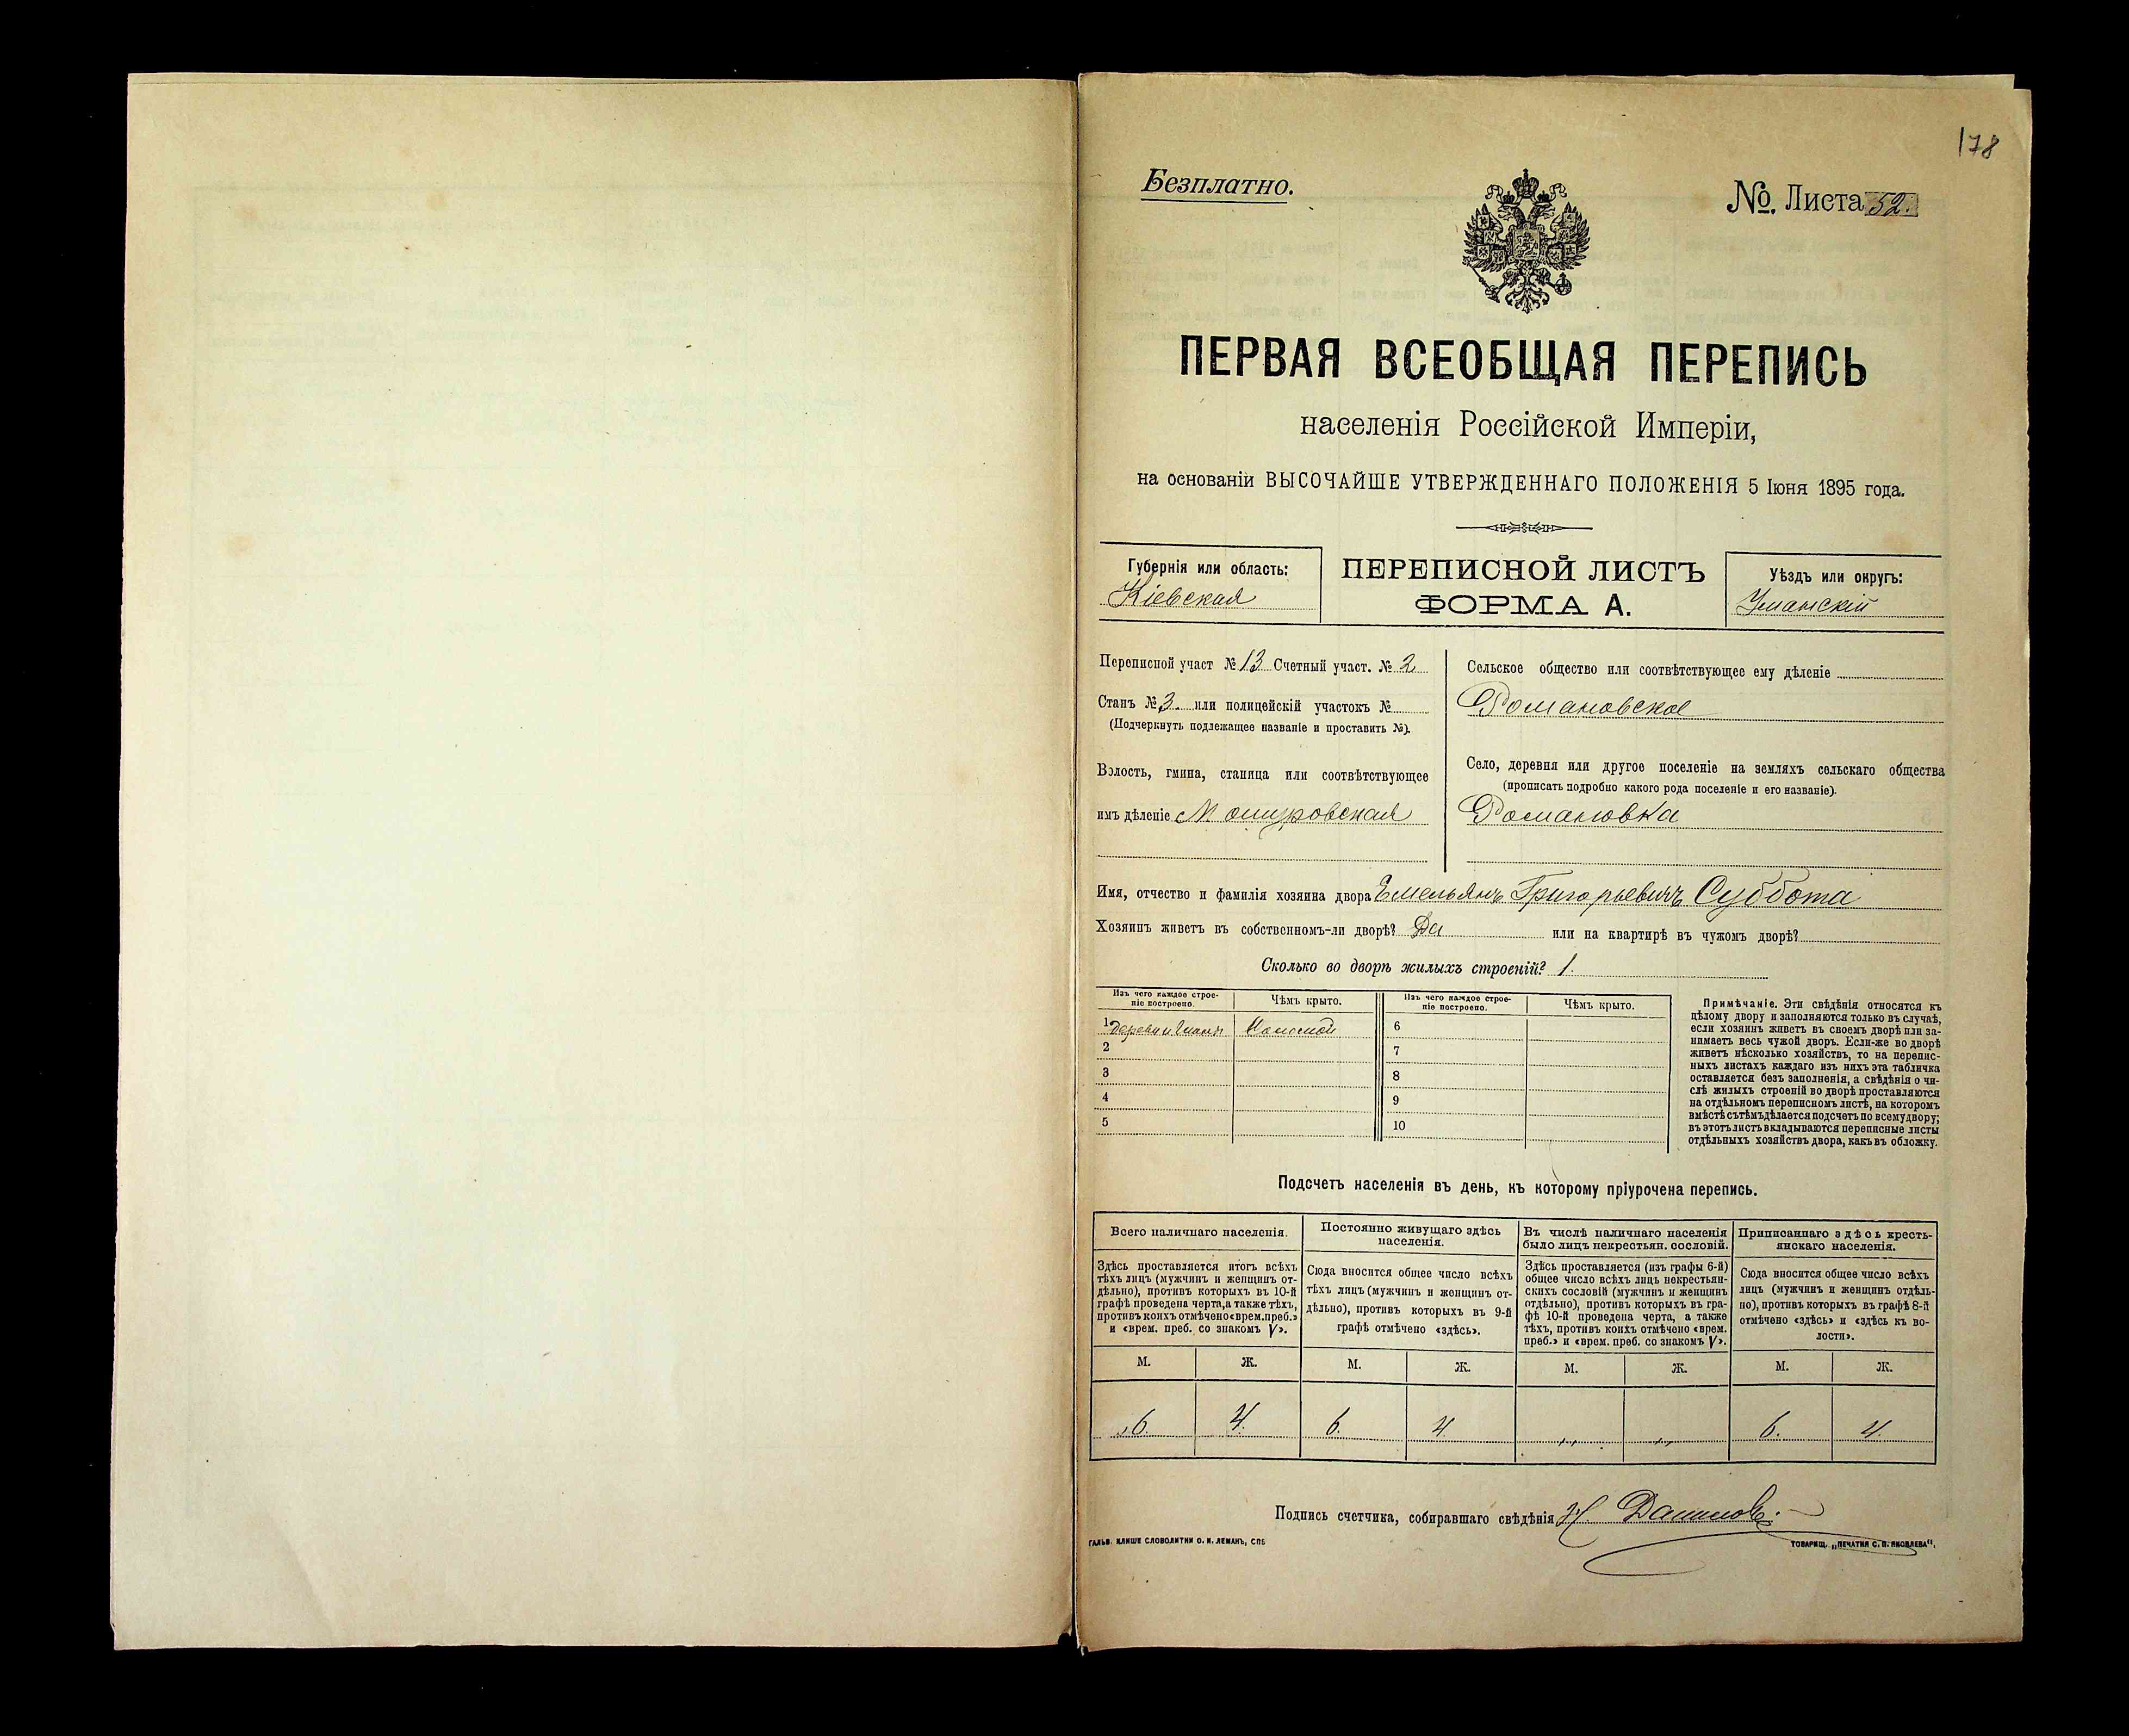 178
Безплатно.
№. Листа 52.
ПЕРВАЯ ВСЕОБЩАЯ ПЕРЕПИСЬ
населенія Россійской Имперіи,
на основаніи ВЫСОЧАЙШЕ УТВЕРЖДЕННАГО ПОЛОЖЕНІЯ 5 Іюня 1895 года.
Губернія или область:
Кіевская
ПЕРЕПИСНОЙ ЛИСТЪ
ФОРМА А.
Уѣздъ или округъ:
Уманскій
Переписной участ № 13 Счетный участ. № 2
Станъ № 3. или полицейскій участокъ №
(Подчеркнуть подлежащее названіе и проставить №).
Волость, гмина, станица или соотвѣтствующее
имъ дѣленіе Мошуровская
Сельское общество или соотвѣтствующее ему дѣленіе
Романовское
Село, деревня или другое поселеніе на земляхъ сельскаго общества
(прописать подробно какого рода поселеніе и его названіе).
Романовка
Имя, отчество и фамилія хозяина двора Емельянъ Григорьевичъ Суббота
Хозяинъ живетъ въ собственномъ-ли дворѣ? Да или на квартирѣ въ чужомъ дворѣ?
Сколько во дворѣ жилыхъ строеній? 1.
Изъ чего каждое строе-
ніе построено.
Чѣмъ крыто.
1 Дерева и Глины
2
3
4
5
Изъ чего каждое строе-
ніе построено.
Чѣмъ крыто.
6
7
8
9
10
Примѣчаніе. Эти свѣдѣнія относятся къ
цѣлому двору и заполняются только въ случаѣ,
если хозяинъ живетъ въ своемъ дворѣ или за-
нимаетъ весь чужой дворъ. Если-же во дворѣ
живетъ нѣсколько хозяйствъ, то на перепис-
ныхъ листахъ каждаго изъ нихъ эта табличка
оставляется безъ заполненія, а свѣдѣнія о чи-
слѣ жилыхъ строеній во дворѣ проставляются
на отдѣльномъ переписномъ листѣ, на которомъ
вмѣстѣ съ тѣмъ дѣлается подсчетъ по всему двору;
въ этотъ листъ вкладываются переписные листы
отдѣльныхъ хозяйствъ двора, какъ въ обложку.
Подсчетъ населенія въ день, къ которому пріурочена перепись.
Всего наличнаго населенія.
Здѣсь проставляется итогъ всѣхъ
тѣхъ лицъ (мужчинъ и женщинъ от-
дѣльно), противъ которыхъ въ 10-й
графѣ проведена черта, а также тѣхъ,
противъ коихъ отмѣчено «врем. преб.»
и «врем. преб. со знакомъ V».
М. Ж.
6. 4.
Постоянно живущаго здѣсь
населенія.
Сюда вносится общее число всѣхъ
тѣхъ лицъ (мужчинъ и женщинъ от-
дѣльно), противъ которыхъ въ 9-й
графѣ отмѣчено «здѣсь».
М. Ж.
6. 4.
Въ числѣ наличнаго населенія
было лицъ некрестьян. сословій.
Здѣсь проставляется (изъ графы 6-й)
общее число всѣхъ лицъ некрестьян-
скихъ сословій (мужчинъ и женщинъ
отдѣльно), противъ которыхъ въ гра-
фѣ 10-й проведена черта, а также
тѣхъ, противъ коихъ отмѣчено «врем.
преб.» и «врем. преб. со знакомъ V».
М. Ж.
Приписаннаго здѣсь кресть-
янскаго населенія.
Сюда вносится общее число всѣхъ
лицъ (мужчинъ и женщинъ отдѣль-
но), противъ которыхъ въ графѣ 8-й
отмѣчено «здѣсь» и «здѣсь къ во-
лости».
М. Ж.
6. 4.
Подпись счетчика, собиравшаго свѣдѣнія Н Даниловъ.
ГАЛЬВ. КЛИШЕ СЛОВОЛИТНИ О. И. ЛЕМАНЪ, СПБ
ТОВАРИЩ. „ПЕЧАТНЯ С. П. ЯКОВЛЕВА",